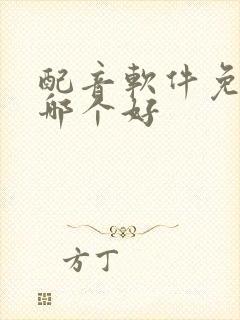 配音軟件免
哪个好
方丁